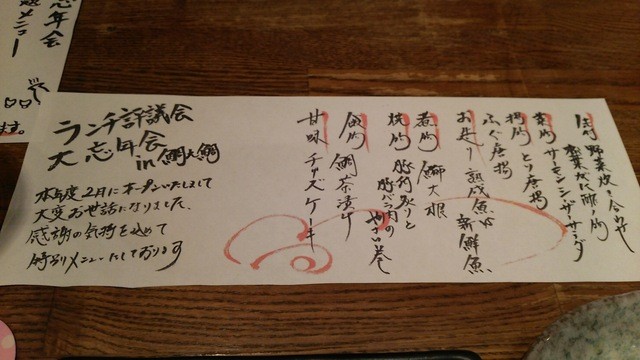 先付 野菜炊き合わせ
菜物 サーモンシーザーサラダ
揚物 とり唐揚
ふぐ唐揚
お造り 熟成魚 vs 新鮮魚
煮物 鰤大根
焼物 豚肉炙りと
豚バラ肉のやさい巻
食物 鯛茶漬け
甘味 チーズケーキ
ランチ評議会
大忘年会
in 鯛大鯛
本年度2月にオープンいたしまして
大変お世話になりました。
感謝の気持を込めて
特別メニューにしております
忘年会
メニュー
ます。